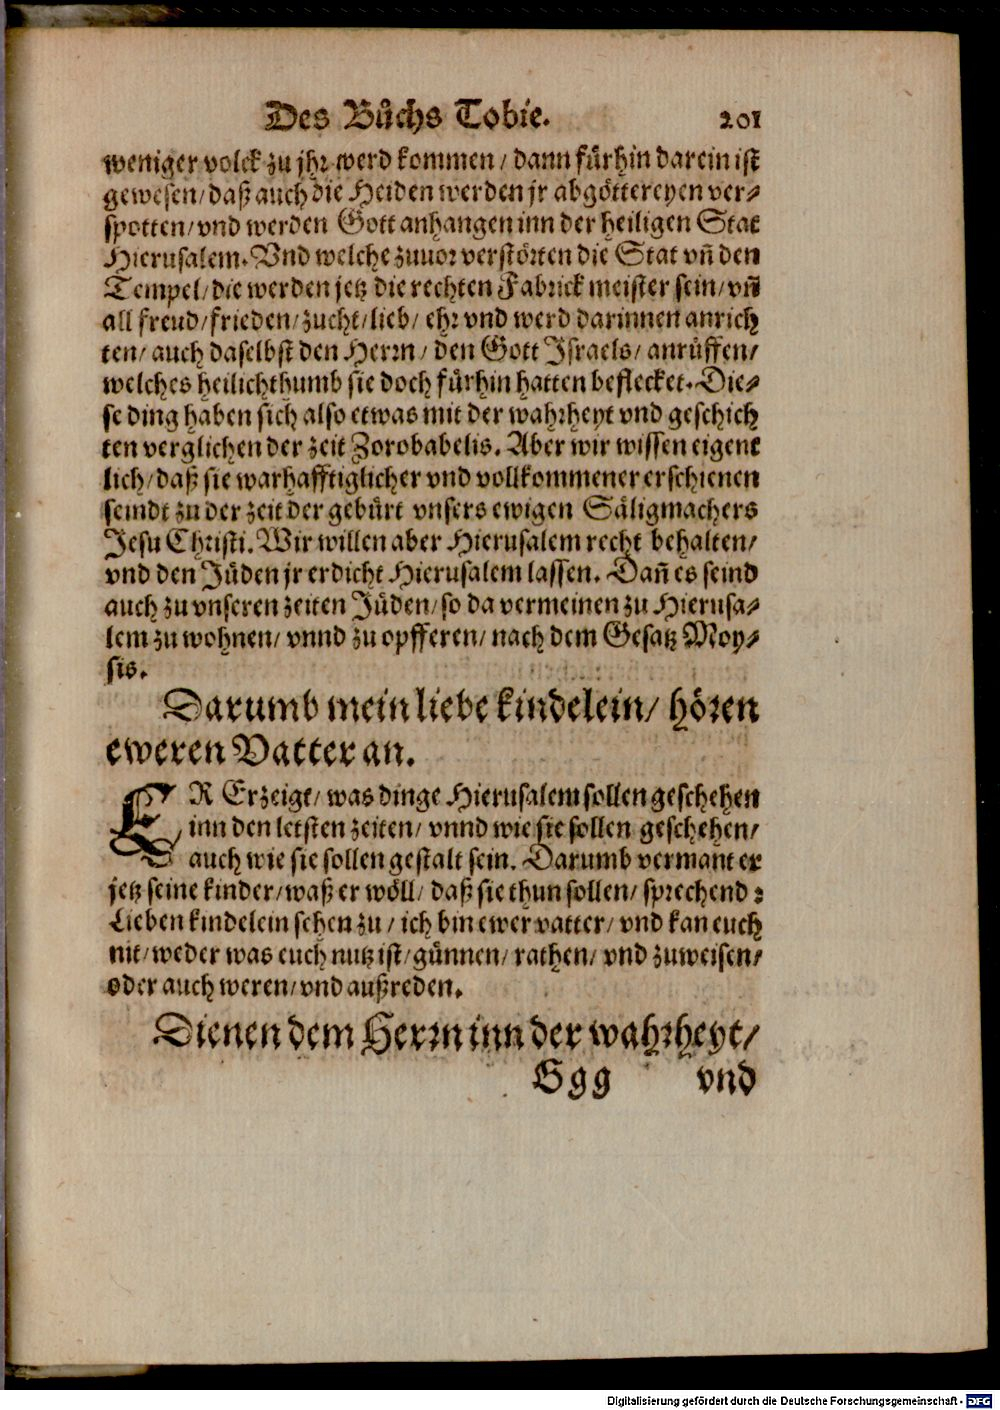 Des Bůchs Tobie. 201
weniger volck zu jhr werd kommen/ dann fürhin darein ist
gewesen/ daß auch die Heiden werden jr abgöttereyen ver-
spotten/ vnd werden Gott anhangen inn der heiligen Stat
Hierusalem. Vnd welche zuuor verstörten die Stat vñ den
Tempel/ die werden jetz die rechten Fabrick meister sein/ vñ
all freud/ frieden/ zucht/ lieb/ ehr vnd werd darinnen anrich
ten/ auch daselbst den Herrn/ den Gott Israels/ anrüffen/
welches heilichthumb sie doch fürhin hatten beflecket. Die-
se ding haben sich also etwas mit der wahrheyt vnd geschich
ten verglichen der zeit Zorobabelis. Aber wir wissen eigent
lich/ daß sie warhafftiglicher vnd vollkommener erschienen
seindt zu der zeit der gebürt vnsers ewigen Säligmachers
Jesu Christi. Wir willen aber Hierusalem recht behalten/
vnd den Jüden jr erdicht Hierusalem lassen. Dañ es seind
auch zu vnseren zeiten Jüden/ so da vermeinen zu Hierusa-
lem zu wohnen/ vnnd zu opfferen/ nach dem Gesatz Moy-
sis.
Darumb mein liebe kindelein/ hören
eweren Vatter an.
ER Erzeigt/ was dinge Hierusalem sollen geschehen
inn den letsten zeiten/ vnnd wie sie sollen geschehen/
auch wie sie sollen gestalt sein. Darumb vermant er
jetz seine kinder/ waß er wöll/ daß sie thun sollen/ sprechend:
Lieben kindelein sehen zu/ ich bin ewer vatter/ vnd kan euch
nit/ weder was euch nutz ist/ günnen/ rathen/ vnd zuweisen/
oder auch weren/ vnd außreden.
Dienen dem Herrn inn der wahrheyt/
Ggg vnd
Digitalisierung gefördert durch die Deutsche Forschungsgemeinschaft - DFG